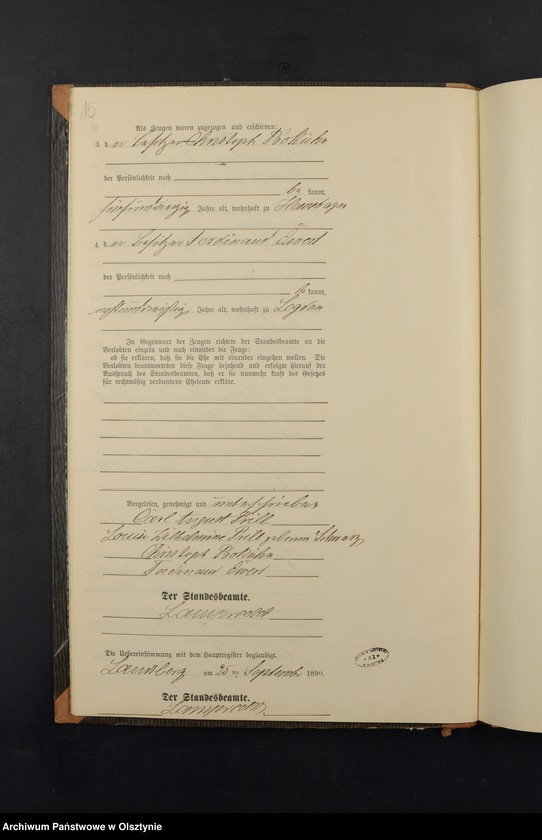 15
Als Zeugen waren zugezogen und erschienen:
3. d. er Besitzer Christoph
der Persönlichkeit nach
be kannt,
fünfundvierzig Jahre alt, wohnhaft zu
4. d. er Besitzer Ferdinand Ewert
der Persönlichkeit nach
be kannt,
Jahre alt, wohnhaft zu Legden
In Gegenwart der Zeugen richtete der Standesbeamte an die
Verlobten einzeln und nach einander die Frage:
ob sie erklären, daß sie die Ehe mit einander eingehen wollen. Die
Verlobten beantworteten diese Frage bejahend und erfolgte hierauf der
Ausspruch des Standesbeamten, daß er sie nunmehr kraft des Gesetzes
für rechtmäßig verbundene Eheleute erkläre.
Vorgelesen, genehmigt und unterschrieben
Carl August Prill
Louise Wilhelmine Prill geborene Schwarz
Christoph
Ferdinand Ewert
Der Standesbeamte.
Lamprecht
Die Uebereinstimmung mit dem Hauptregister beglaubigt.
Landsberg am 25 ten September 1890.
Der Standesbeamte.
Lamprecht
Archiwum Państwowe w Olsztynie